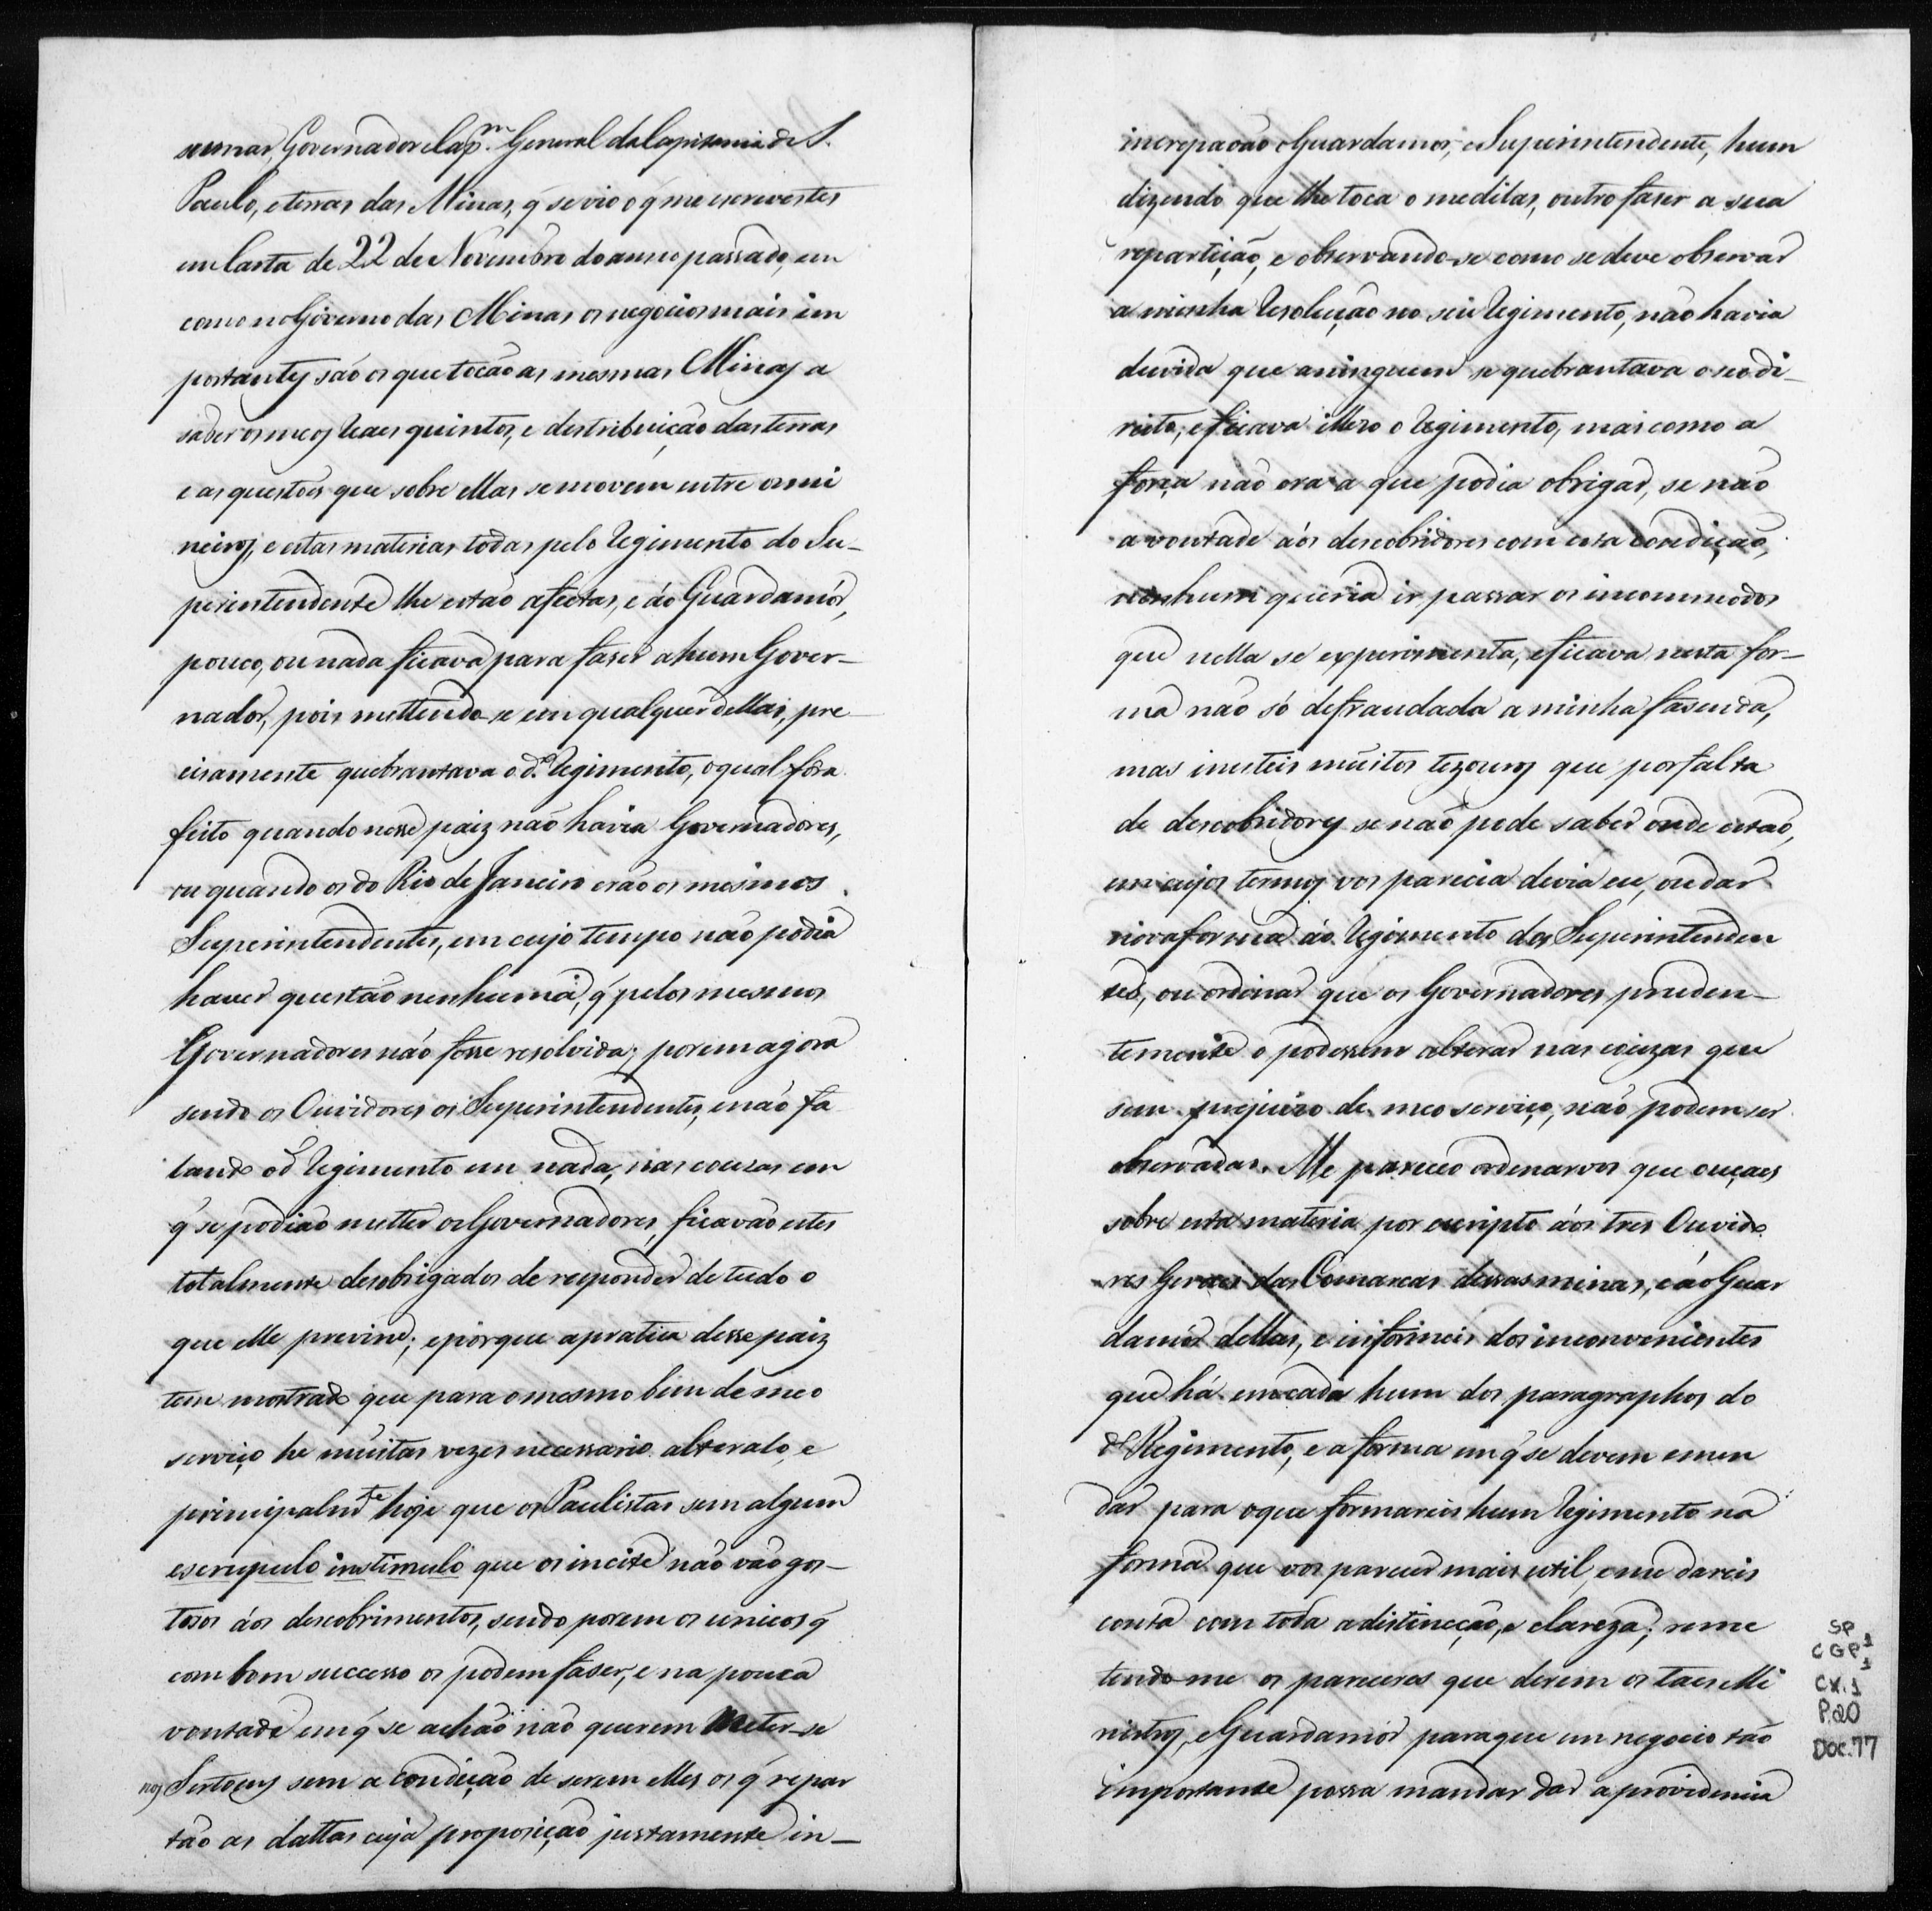 sumar, Governador e Cap.m General da Capitania de S.
Paulo, e terras das Minas, q̃ se vio o q̃ me escrevestes
em Carta de 22 de Novembro do anno passado, em
como no Governo das Minas os negocios mais im
portantes são os que tocão as mesmas Minas a
saber os meos Reaes quintos, e destribuição das terras
e as questões que sobre ellas se movem entre os mi
neiros, e estas materias todas pelo Regimento do Su-
perintendente lhe estão afectas, e áo Guardamór,
pouco, ou nada ficava para faser a hum Gover-
nador, pois mettendo-se em qualquer dellas, pre-
cisamente quebrantava o d.o Regimento, o qual fôra
feito quando nesse paiz não havia Governadores,
ou quando os do Rio de Janeiro erão os mesmos
Superintendentes, em cujo tempo não podia
haver questão nenhuma, q̃ pelos mesmos
Governadores não fosse resolvida; porem agora
sendo os Ouvidores os Superintendentes, e não fa
lando o d.o Regimento em nada, nas couzas em
q̃ se podião metter os Governadores, ficavão estes
totalmente desobrigados de responder de tudo o
que elle previne; e porque a pratica desse paiz
tem mostrado que para o mesmo bem de meo
serviço he muitas vezes necessario alteralo, e
principalm.te hoje que os Paulistas sem algum
escrupulo instimulo que os incite não vão gos-
tosos áos descobrimentos, sendo porem os unicos q̃
com bom successo os podem faser, e na pouca
vontade em q̃ se achão não querem meter-se
nos Sertoens sem a condição de serem elles os q̃ repar
tão as dattas cuja proposição justamente in-
increpavão o Guardamor, e Superintendente, hum
dizendo que lhe toca o medilas, outro faser a sua
repartição, e observando-se como se deve observar
a minha Resolução no seu Regimento, não havia
duvida que a ninguem se quebrantava o seo di-
reito, e ficava illezo o Regimento, mas como a
força não era a que podia obrigar, se não
a vontade áos descobridores com esta condição,
nenhum queria ir passar os incommodos
que nella se experimenta, e ficava nesta for-
ma não só defraudada a minha fasenda,
mas inuteis muitos tezouros que por falta
de descobridores se não pode saber onde estão,
em cujos termos vos parecia devia eu, ou dar
nova forma áo Regimento dos Superintenden
tes, ou ordenar que os Governadores pruden-
temente o podessem alterar nas couzas que
sem prejuizo de meo serviço, não podem ser
observadas. Me pareceo ordenarvos que ouçaes
sobre esta materia por escripto áos tres Ouvido
res Geraes das Comarcas dessas minas, e áo Guar
damór dellas, e informeis dos inconvenientes
que há em cada hum dos paragraphos do
d.o Regimento, e a forma em q̃ se devem emen
dar para o que formareis hum Regimento na
forma que vos parecer mais util, e me dareis
conta com toda a distincção, e clareza; reme
tendo-me os pareceres que derem os taes Mi
nistros, e Guardamór para que em negocio tão
importante possa mandar dar a providencia
SP
CGP1
1
CX.1
P.20
Doc.77